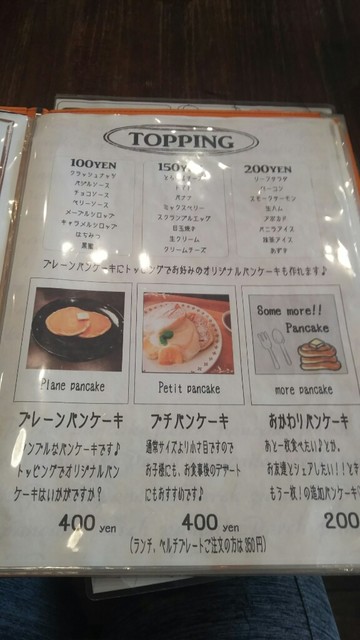 TOPPING
100YEN
クラッシュナッツ
バジルソース
チョコソース
ベリーソース
メープルシロップ
キャラメルシロップ
はちみつ
黒蜜
150
バナナ
ミックスベリー
スクランブルエッグ
目玉焼き
生クリーム
クリームチーズ
200YEN
リーフサラダ
ベーコン
スモークサーモン
生ハム
アボカド
バニラアイス
抹茶アイス
あずき
プレーンパンケーキにトッピングでお好みのオリジナルパンケーキも作れます♪
Plane pancake
Petit pancake
Some more!!
Pancake
more pancake
プレーンパンケーキ
シンプルなパンケーキです♪
トッピングでオリジナルパン
ケーキはいかがですか？
400 yen
プチパンケーキ
通常サイズより小さ目ですので
お子様にも、お食事後のデザート
にもおすすめです♪
400 yen
(ランチ、ベルチプレートご注文の方は350円)
おかわりパンケーキ
あと一枚食べたい♪とか、
お友達とシェアしたい！！とき
もう一枚！の追加パンケーキ
200